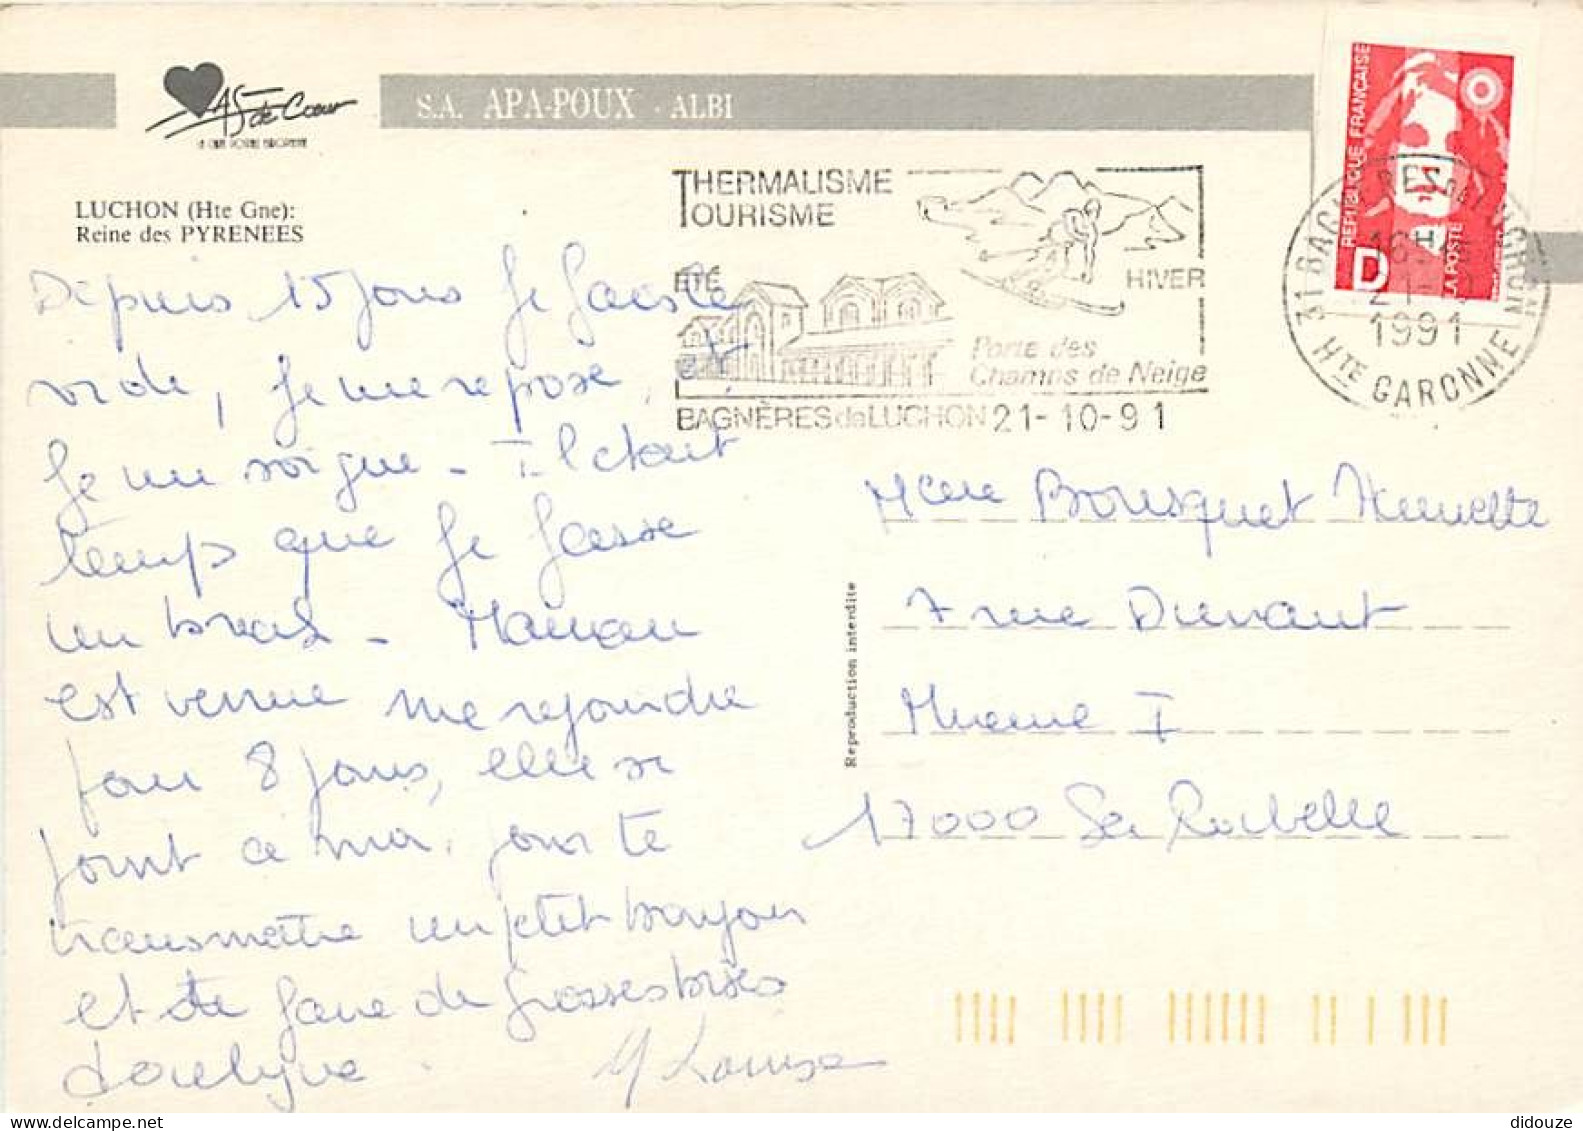 As de Coeur
S.A. APA-POUX - ALBI
LUCHON (Hte Gne):
Reine des PYRENEES
REPUBLIQUE FRANÇAISE
D
LA POSTE
THERMALISME
TOURISME
ETÉ
HIVER
Porte des
Champs de Neige
BAGNÈRES de LUCHON 21-10-91
16H
1991
HTE GARONNE
Depuis 15 jours je fais le
vide, je me repose et
je me soigne - Il était
temps que je fasse
un break - Maman
est venue me rejoindre
pour 8 jours, elle se
joint à moi, pour te
transmettre un petit bonjour
et te faire de grosses bises
Jocelyne. M Louise
Reproduction interdite
Bousquet
7 rue Durant
Mireuil I
17000 La Rochelle
didouze